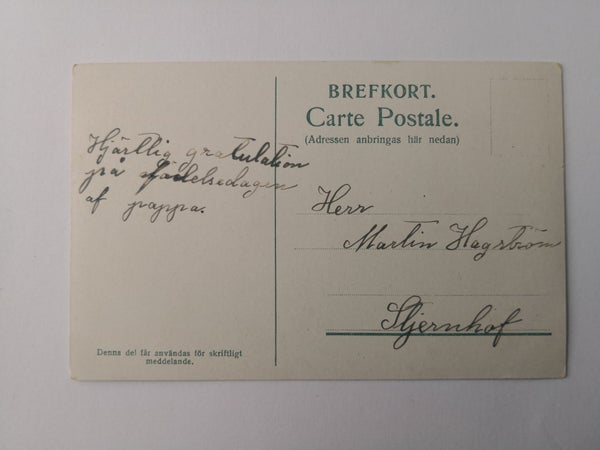 BREFKORT.
Carte Postale.
(Adressen anbringas här nedan)
Hjärtlig gratulation
på födelsedagen
af pappa.
Herr
Martin Hagström
Stjernhof
Denna del får användas för skriftligt
meddelande.